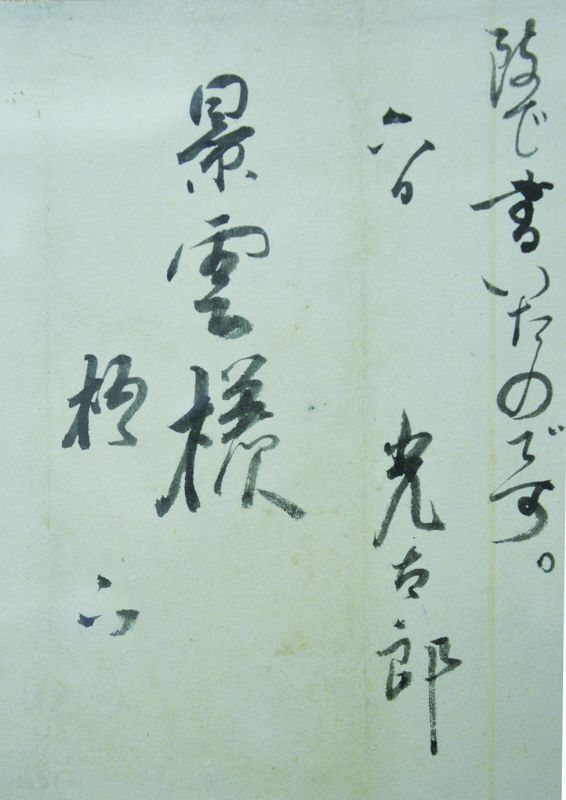 で書いたのです。
六日　光太郎
景雲様
梧下